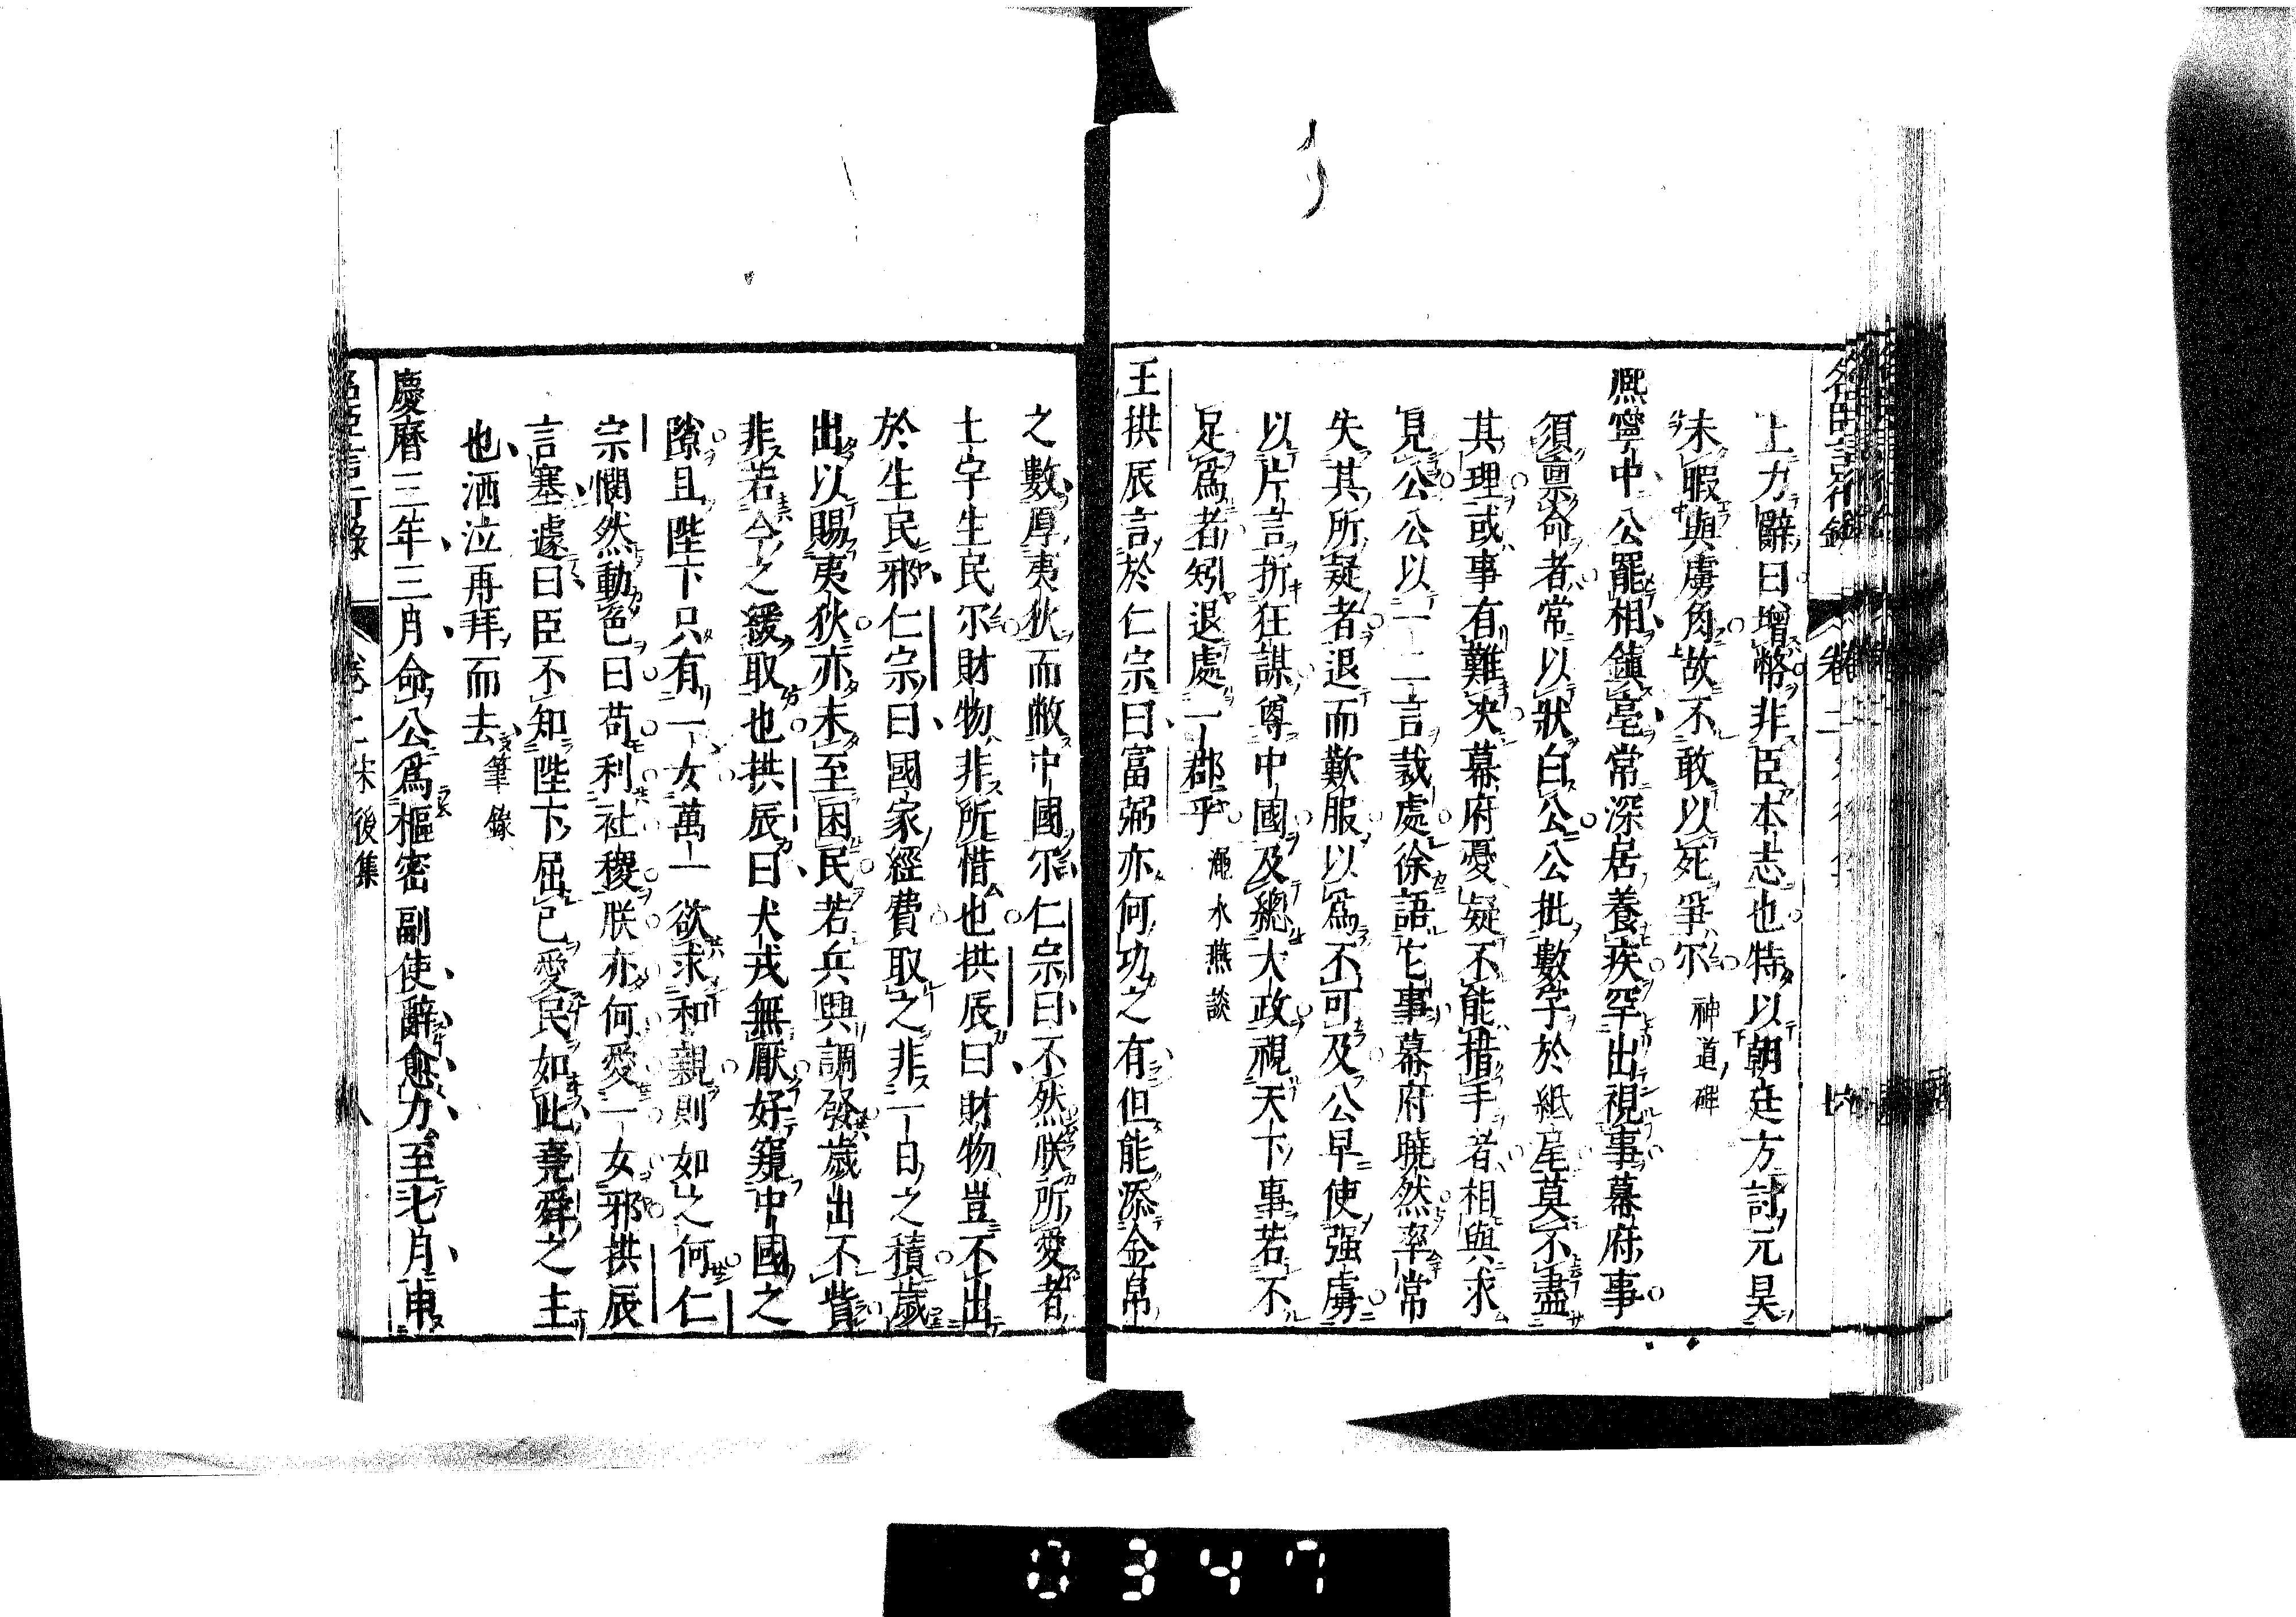 名臣言行錄
卷二
上力辭曰增幣非臣本志也特以朝廷方討元昊
未暇與虜角故不敢以死爭尓 神道碑
熈寧中公罷相鎮亳常深居養疾罕出視事幕府事
須禀命者常以狀白公公批數字於紙尾莫不盡
其理或事有難决幕府憂疑不能措手者相與求
見公公以一二言裁處徐語它事幕府曉然率常
失其所疑者退而歎服以爲不可及公早使强虜
以片言折狂謀尊中國及總大政視天下事若不
足爲者矧退處一郡乎 澠水燕談
王拱辰言於仁宗曰富弼亦何功之有但能添金帛
之數厚夷狄而敝中國尓仁宗曰不然朕所愛者
土宇生民尓財物非所惜也拱辰曰財物豈不出
於生民邪仁宗曰國家經費取之非一日之積歲
出以賜夷狄亦未至困民若兵興調發歲出不貲
非若今之緩取也拱辰曰犬戎無厭好窺中國之
隙且陛下只有一女萬一欲求和親則如之何仁
宗憫然動色曰苟利社稷朕亦何愛一女邪拱辰
言塞遽曰臣不知陛下屈己愛民如此堯舜之主
也洒泣再拜而去 筆錄
慶曆三年三月命公爲樞密副使辭愈力至七月申
名臣言行錄
卷二 後集
八
0347